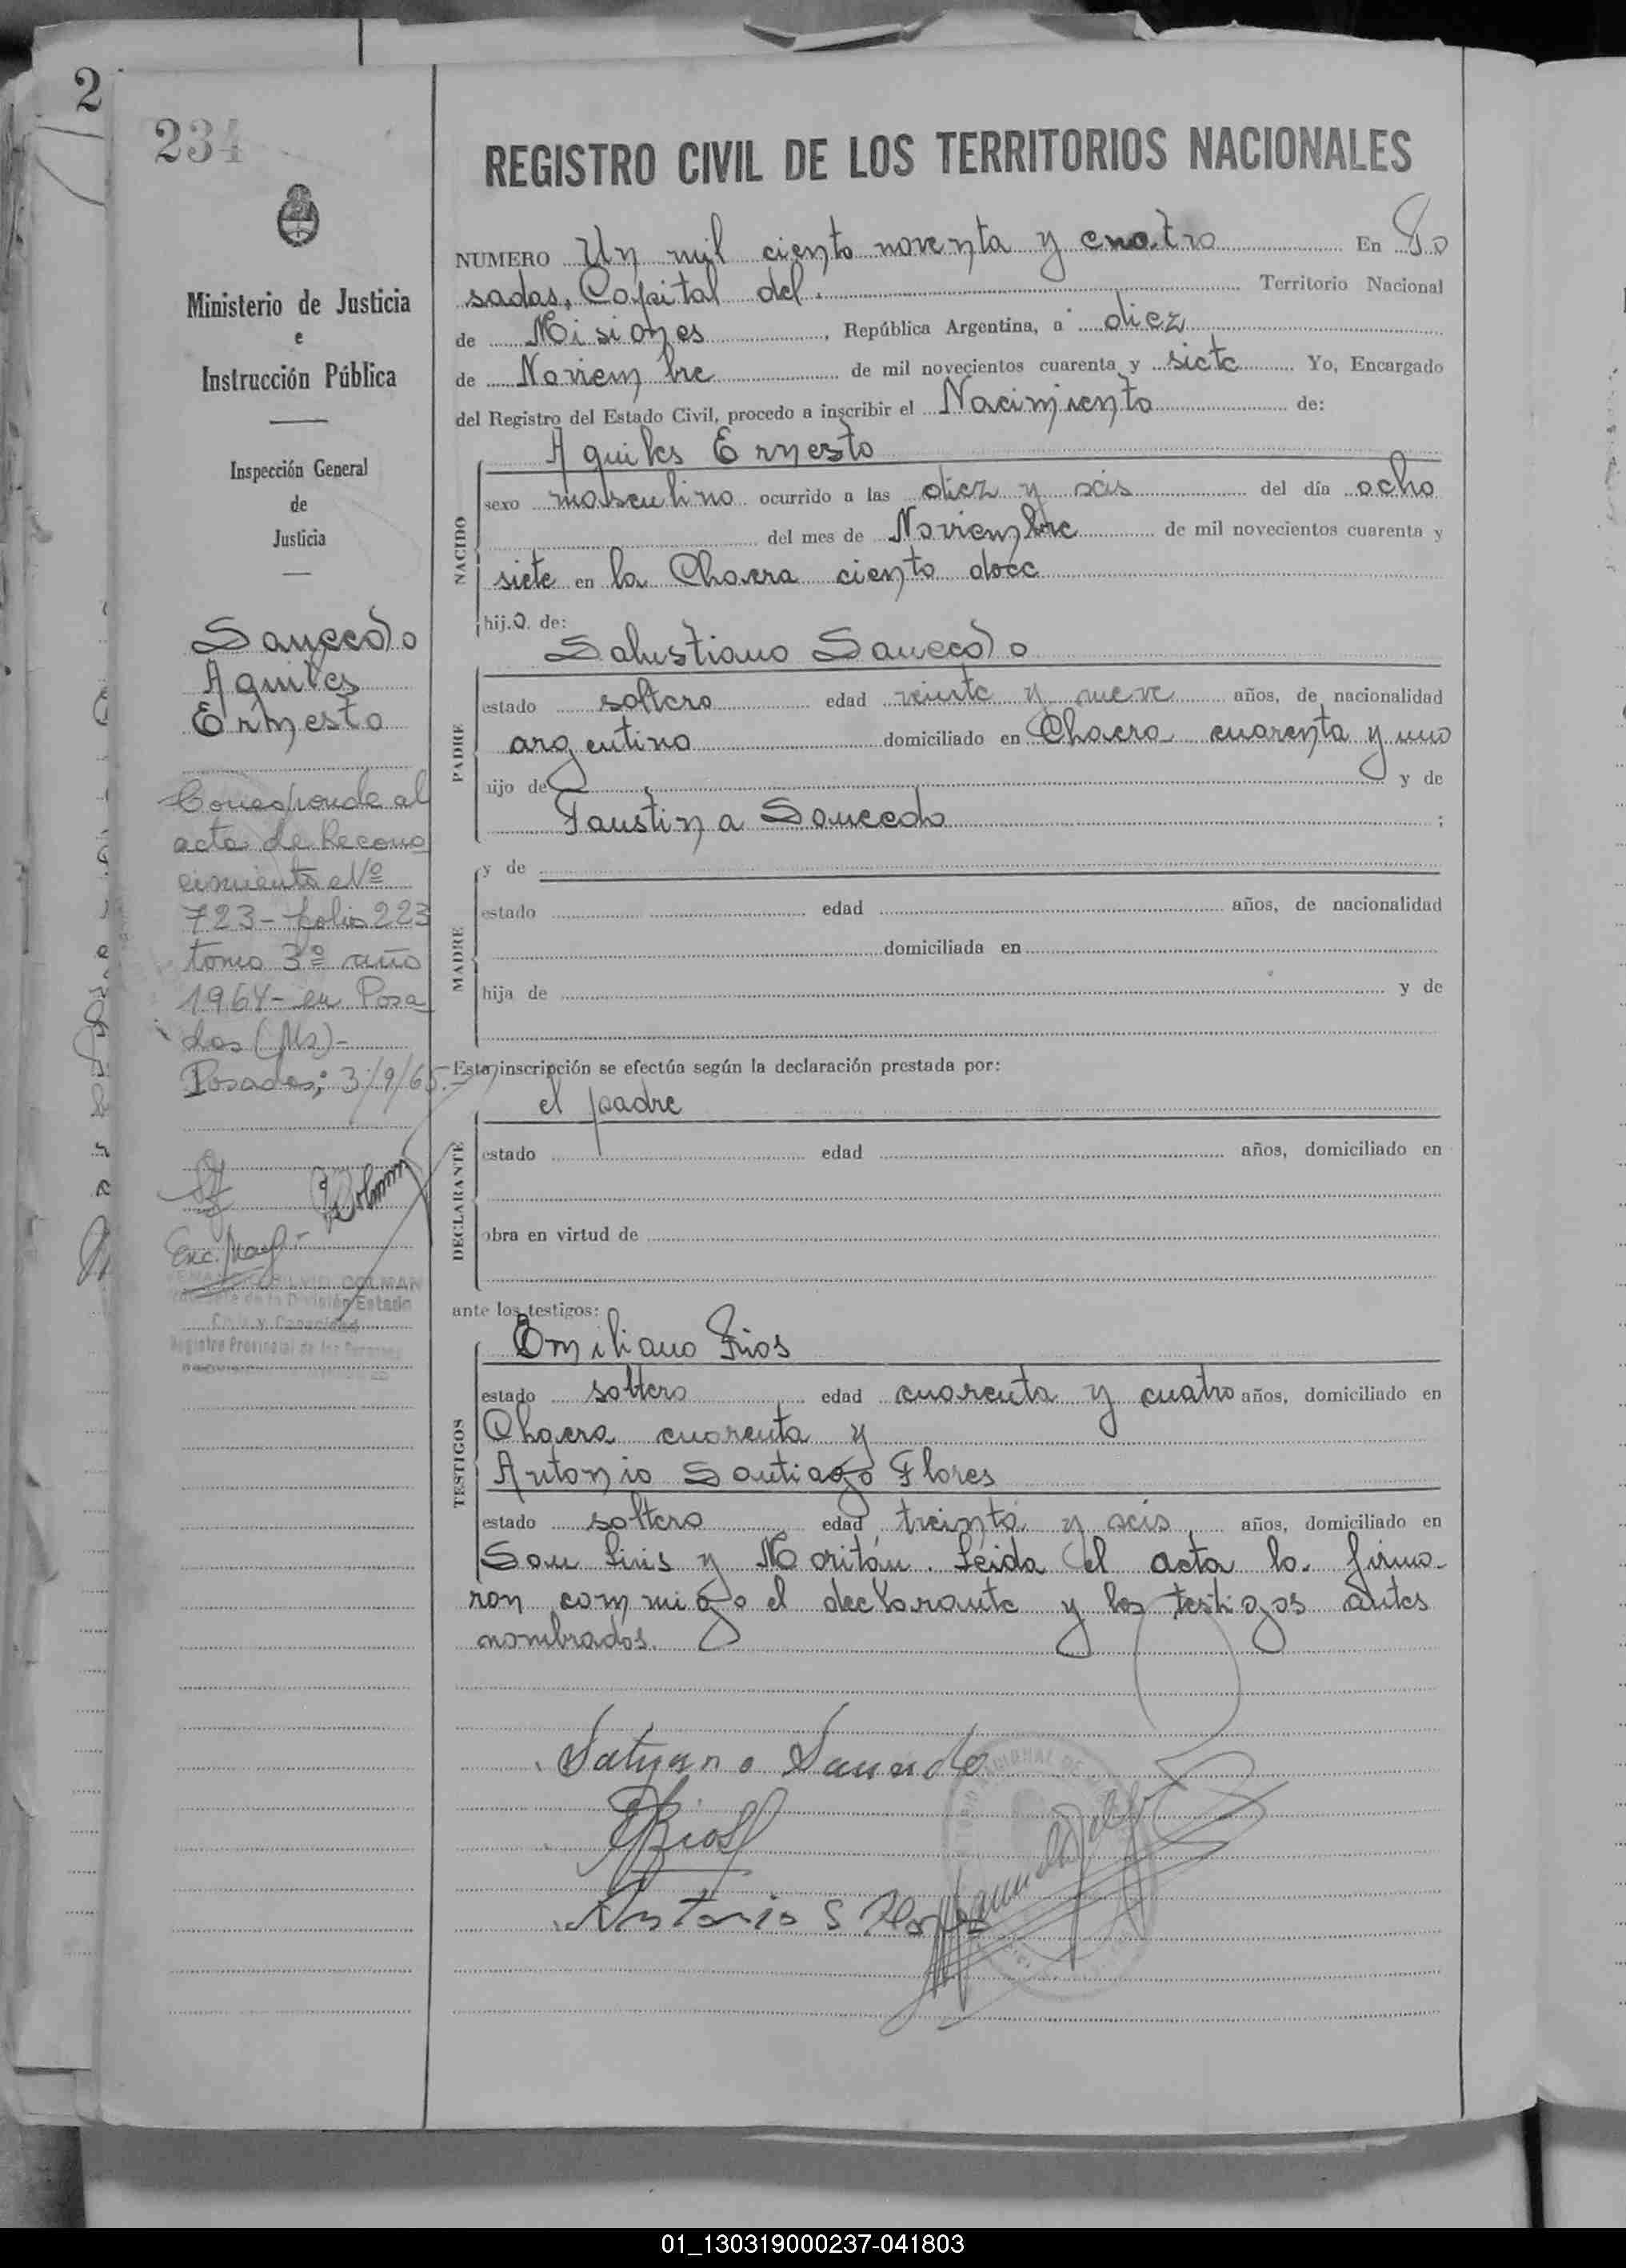 2
234
REGISTRO CIVIL DE LOS TERRITORIOS NACIONALES
NUMERO Un mil ciento noventa y cuatro En Po
sadas, Capital del Territorio Nacional
de Misiones, República Argentina, a diez
de Noviembre de mil novecientos cuarenta y siete Yo, Encargado
del Registro del Estado Civil, procedo a inscribir el Nacimiento de:
Aquiles Ernesto
NACIDO
sexo masculino ocurrido a las diez y seis del día ocho
del mes de Noviembre de mil novecientos cuarenta y
siete en la Chacra ciento doce
hijo. de:
Salustiano Saucedo
PADRE
estado soltero edad veinte y nueve años, de nacionalidad
argentino domiciliado en Chacra cuarenta y uno
hijo de y de
Faustina Saucedo ;
y de
MADRE
estado edad años, de nacionalidad
domiciliada en
hija de y de
Esta inscripción se efectúa según la declaración prestada por:
el padre
DECLARANTE
estado edad años, domiciliado en
obra en virtud de
ante los testigos:
Emiliano Frios
TESTIGOS
estado soltero edad cuarenta y cuatro años, domiciliado en
Chacra cuarenta y
Antonio Santiago Flores
estado soltero edad treinta y seis años, domiciliado en
San Luis y Moritán. Leida el acta la firma-
ron conmigo el declarante y los testigos antes
nombrados.
Saucedo
Antonio S Flores
Ministerio de Justicia
e
Instrucción Pública
Inspección General
de
Justicia
Saucedo
Aquiles
Ernesto
Corresponde al
acta de Recono
cimiento Nº
723 - folio 223
tomo 3º año
1964 - en Posa
das (Ms) -
Posadas; 3/9/65.-
COLMAN
de la División Estado
Civil y Capacidad
Registro Provincial de las Personas
01_130319000237-041803